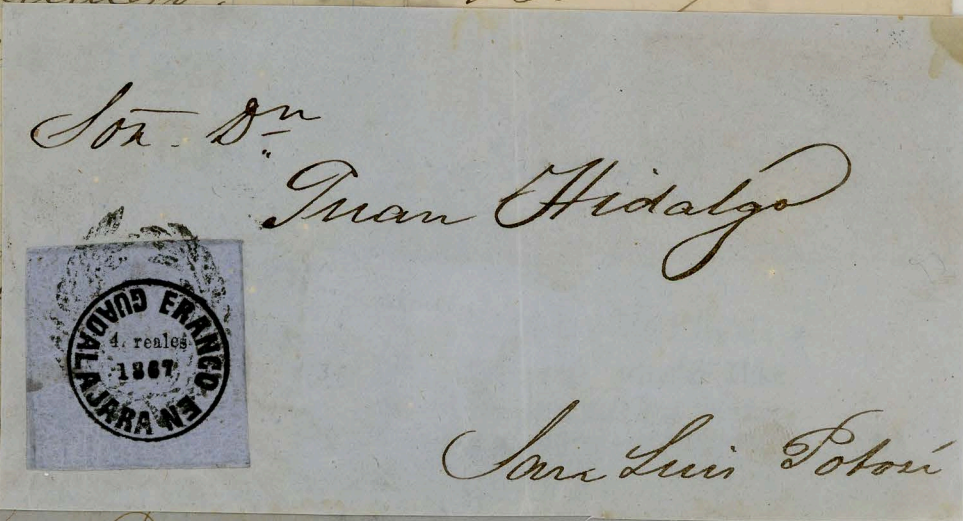 Sōn. Dn
Juan Hidalgo
FRANCO EN GUADALAJARA
4. reales
1867
San Luis Potosí